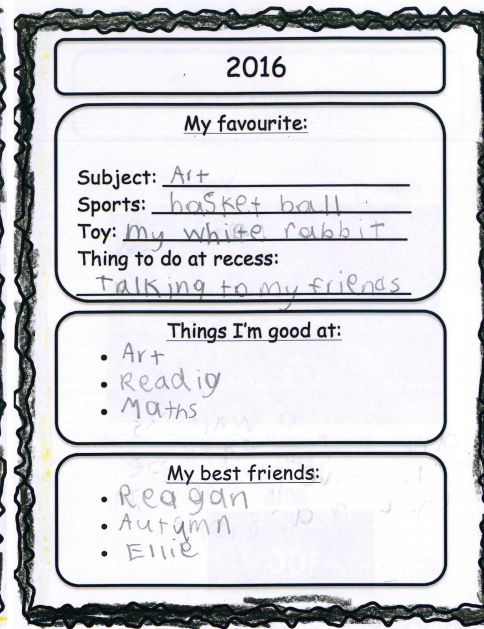 2016
My favourite:
Subject: Art
Sports: basket ball
Toy: my white rabbit
Thing to do at recess:
Talking to my friends
Things I'm good at:
• Art
• Readig
• Maths
My best friends:
• Reagan
• Autymn
• Ellie